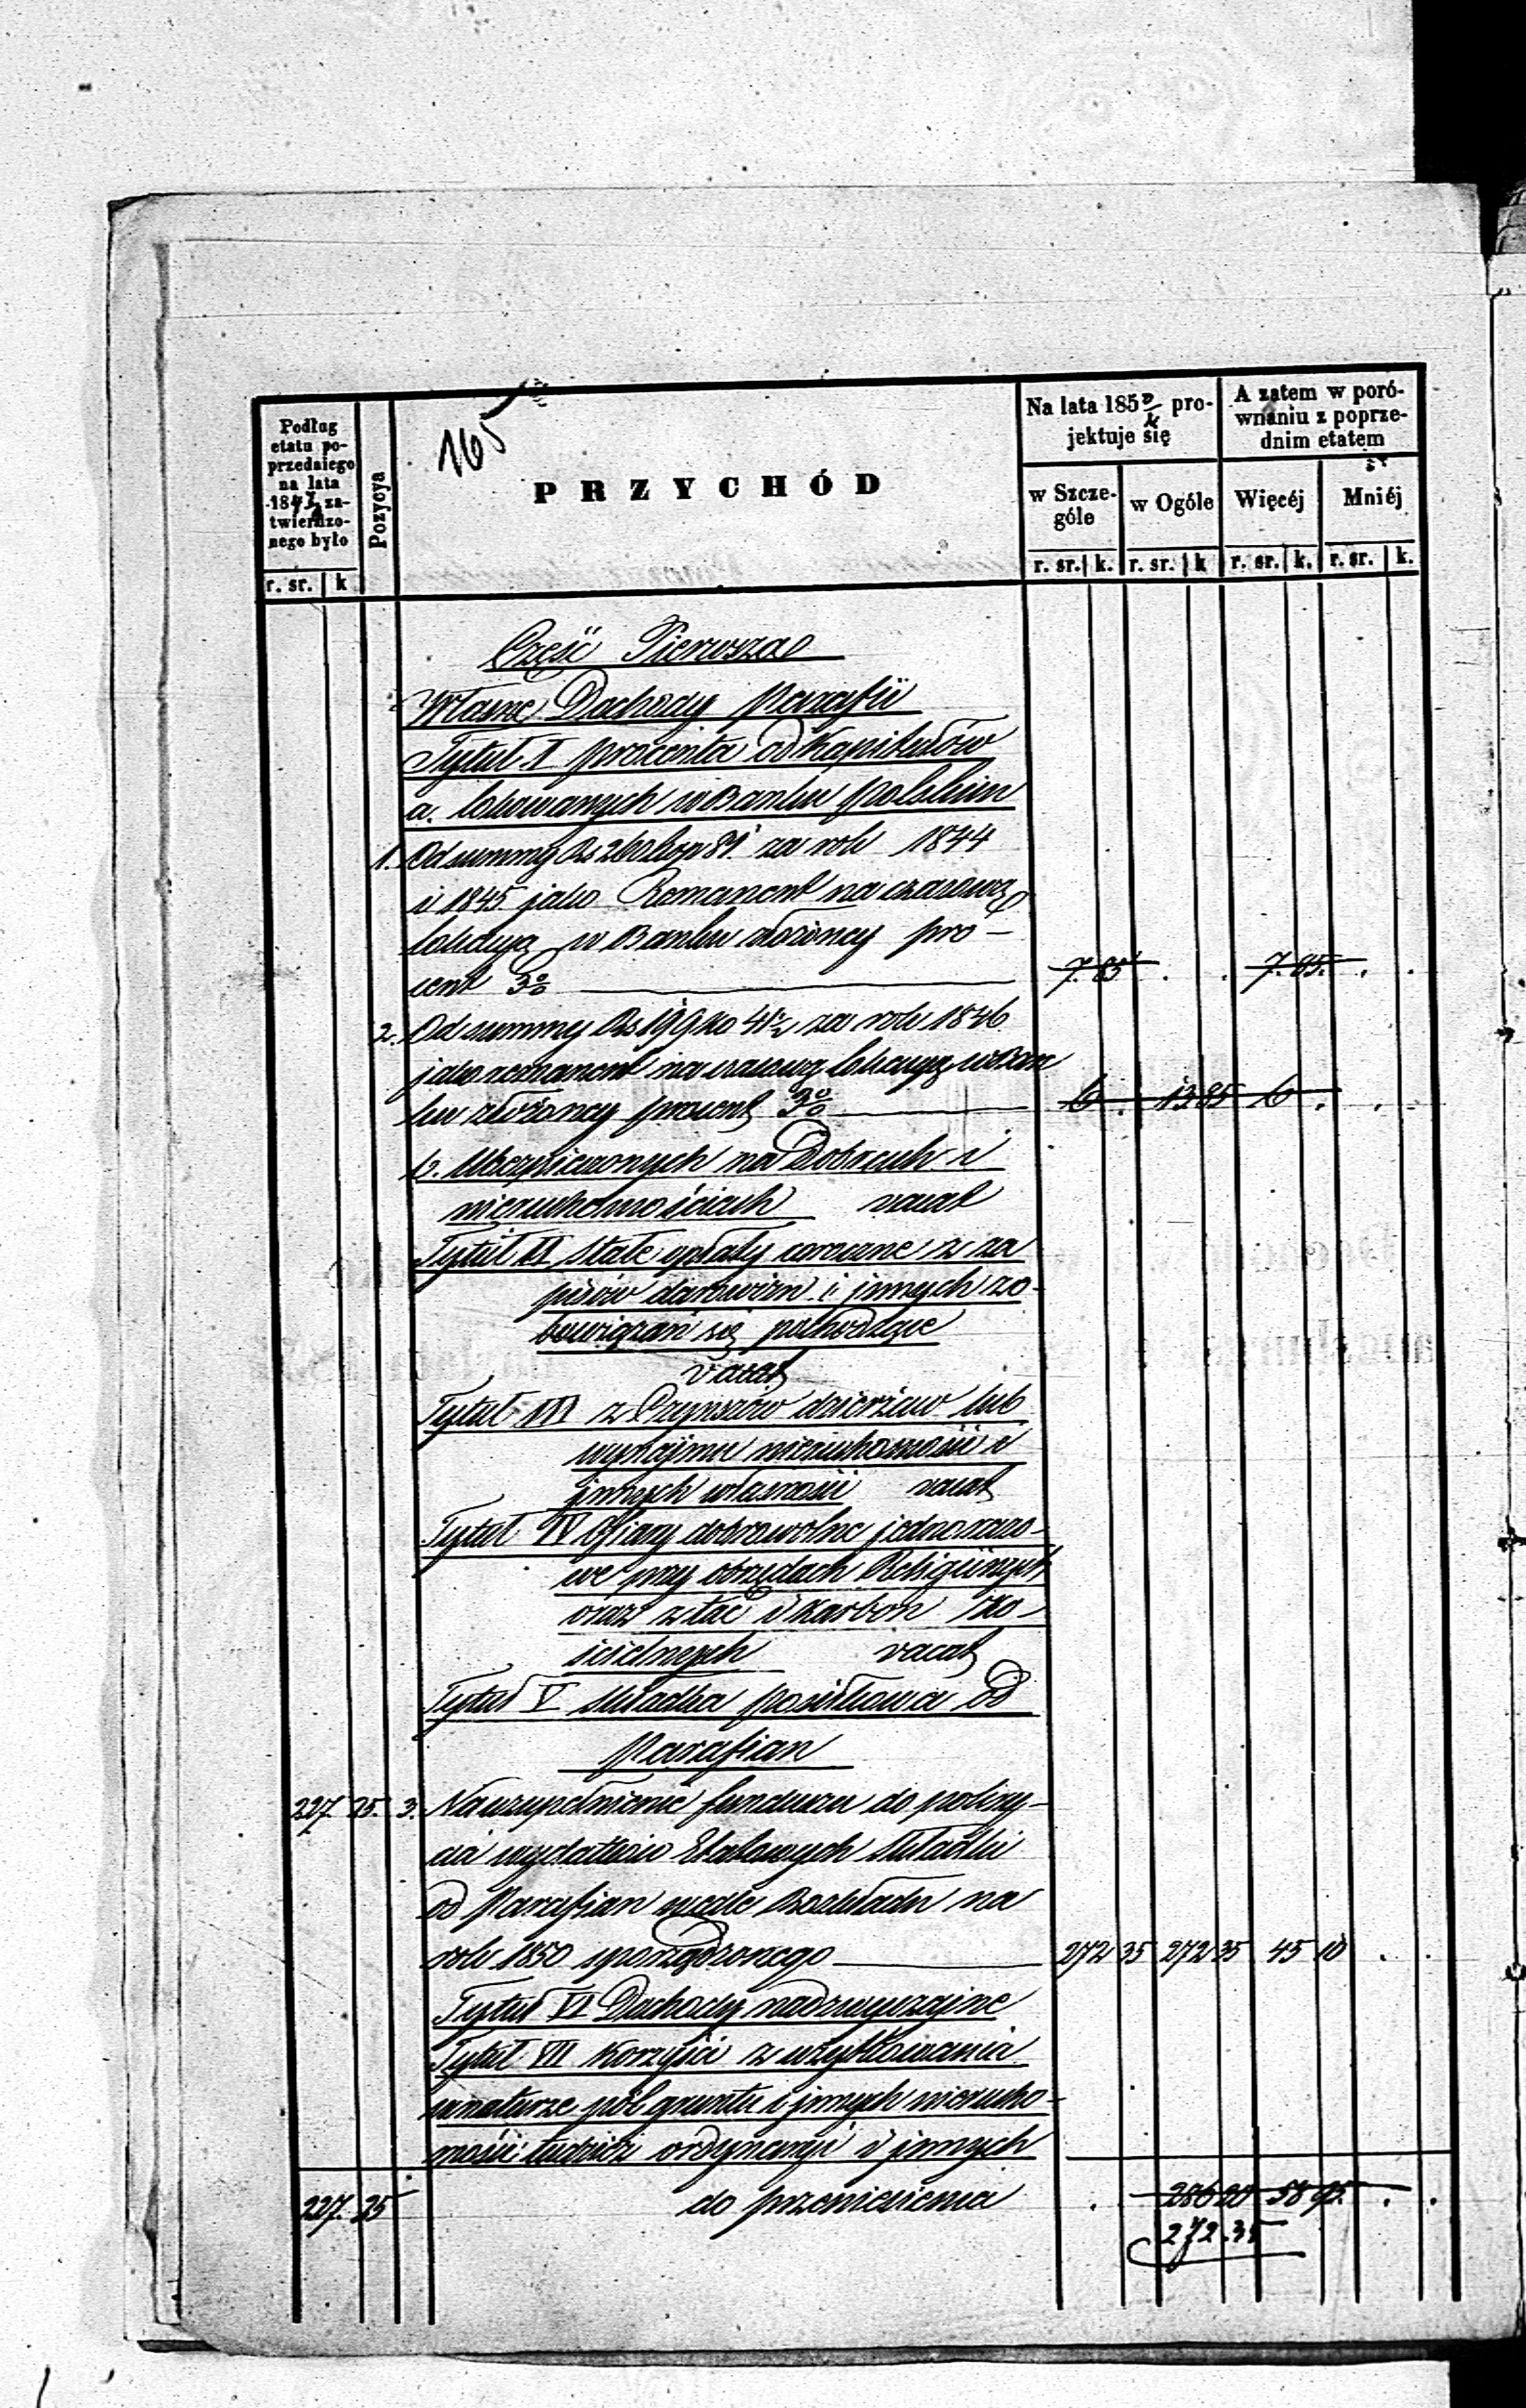 165
Podług
etatu po-
przedniego
na lata
184 za-
twierdzo-
nego było
Pozycya
PRZYCHÓD
Na lata 185 pro-
jektuje się
A zatem w poró-
wnaniu z poprze-
dnim etatem
w Szcze-
góle
w Ogóle
Więcéj
Mniéj
r. sr. k
r. sr. k. r. sr. k r. sr. k. r. sr. k.
Część Pierwsza
Własne Dochody Parafii
Tytuł I procenta od Kapitałów
a. lokowanych w Banku polskim
1. Od summy Rs 260 kop 81. za rok 1844
i 1845 jako Remanent na czasową
lokacyą w Banku złożoney pro-
cent 3% 7. 85 7. 85.
2. Od summy Rs 199 ko 41½ za rok 1846
jako remanent na czasową lokacyą w Ban
ku złożoney procent 3% 6 . 13 85 6 .
b. Ubezpieczonych na Dobrach i
nieruchomościach vacat
Tytuł II stałe opłaty coroczne z za
pisów darowizn i innych zo-
bowiązań się pochodzące
vacat
Tytuł III z Czynszów dzierżaw lub
wynajmu nieruchomości i
innych własności vacat
Tytuł IV Ofiary dobrowolne jednorazo-
we przy obrzędach Religijnych
oraz z tac i Karbon Ko-
ścielnych vacat
Tytuł V Składka posiłkowa od
Parafian
227. 25. 3. Na uzupełnienie funduszu do pokry-
cia wydatków Etatowych Składki
od Parafian wedle Rozkładu na
rok 1850 sporządzonego 272 35 272 35 45 10
Tytuł VI Dochody nadzwyczajne
Tytuł VII Korzyści z użytkowania
w naturze pól gruntu i innych nierucho-
mości tudzież ordynaryi i innych
227. 25 do przeniesienia 286 20 58 95.
272.35